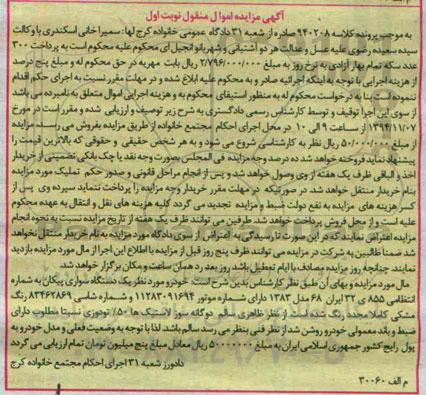 آگهی مزایده اموال منقول نوبت اول
به موجب پرونده کلاسه ۹۴۰۲۰۸ صادره از شعبه ۳۱ دادگاه عمومی خانواده کرج لها: سمیرا خانی اسکندری با وکالت
سیده سعیده رضوی علیه عسل و عدالت هر دو آشتیانی و شهربانو انجیل ای محکوم علیه محکوم است به پرداخت ۳۰۰
عدد سکه تمام بهار آزادی به نرخ روز به مبلغ ۲/۷۹۶/۰۰۰/۰۰۰ ریال بابت مهریه در حق محکوم له و مبلغ پنج درصد
از هزینه اجرایی با توجه به اینکه اجرائیه صادر و به محکوم علیه ابلاغ شده و در مهلت مقرر نسبت به اجرای حکم اقدام
ننموده است بنا به درخواست محکوم له به منظور استیفای محکوم به و هزینه اجرایی اموال متعلق به نامبرده می باشد
از سوی این اجرا توقیف و توسط کارشناس رسمی دادگستری به شرح زیر توصیف و ارزیابی شده و مقرر است در مورخ
۱۳۹۴/۱۱/۰۷ از ساعت ۹ الی ۱۰ در محل اجرای احکام مجتمع خانواده از طریق مزایده بفروش می رسد. مزایده
از مبلغ ۵۰/۰۰۰/۰۰۰ ریال نظر به کارشناسی شروع می شود و به هر شخص حقیقی و حقوقی که بالاترین قیمت را
پیشنهاد نماید فروخته خواهد شد ده درصد وجه مزایده فی المجلس بصورت وجه نقد یا چک بانکی تضمینی از خریدار
اخذ و الباقی ظرف یک هفته از وی وصول خواهد شد و پس از انجام مراحل قانونی و صدور حکم تملیک مورد مزایده
بنام خریدار منتقل خواهد شد. در صورتیکه در مهلت مقرر خریدار وجه مزایده را پرداخت ننماید سپرده وی پس از
کسر هزینه های مزایده به نفع دولت ضبط و مزایده تجدید می گردد کلیه هزینه های نقل و انتقال به عهده محکوم
علیه است و از محل فروش پرداخت خواهد شد. طرفین می توانند ظرف یک هفته از تاریخ مزایده نسبت به نحوه انجام
مزایده اعتراض نمایند که در این صورت تا رسیدگی به اعتراض از سوی دادگاه مورد مزایده به نام خریدار منتقل نخواهد
شد ضمنا طالبین به شرکت در مزایده می توانند ظرف پنج روز قبل از مزایده با اطلاع این اجرا از مال مورد مزایده بازدید
نمایند. چنانچه روز مزایده مصادف با ایام تعطیل باشد روز بعد در همان ساعت و مکان برگزار خواهد شد.
مال مورد مزایده و بهای آن طبق نظر کارشناس بدین شرح است: خودرو مورد نظر یک دستگاه سواری پیکان به شماره
انتظامی ۸۵۵ ی ۳۲ ایران ۶۸ مدل ۱۳۸۳ دارای شماره موتور ۱۱۲۸۳۰۹۱۶۹۴ و شماره شاسی ۸۳۴۶۲۸۶۹ رنگ
مشکی کاملا مجدد رنگ شده است. از نظر ظاهری سالم دوگانه سوز لاستیک ها ۵۰٪ تودوزی نسبتا مطلوب دارای
ضبط و باند معمولی خودرو روشن شد از نظر فنی بنظر می رسد سالم باشد. لذا با توجه به وضعیت فعلی و مدل خودرو به
پول رایج کشور جمهوری اسلامی ایران به مبلغ ۵۰۰۰۰۰۰۰ ریال معادل مبلغ پنج میلیون تمام ارزیابی می گردد
دادورز شعبه ۳۱ اجرای احکام مجتمع خانواده کرج
م الف ۳۰۰۶۰